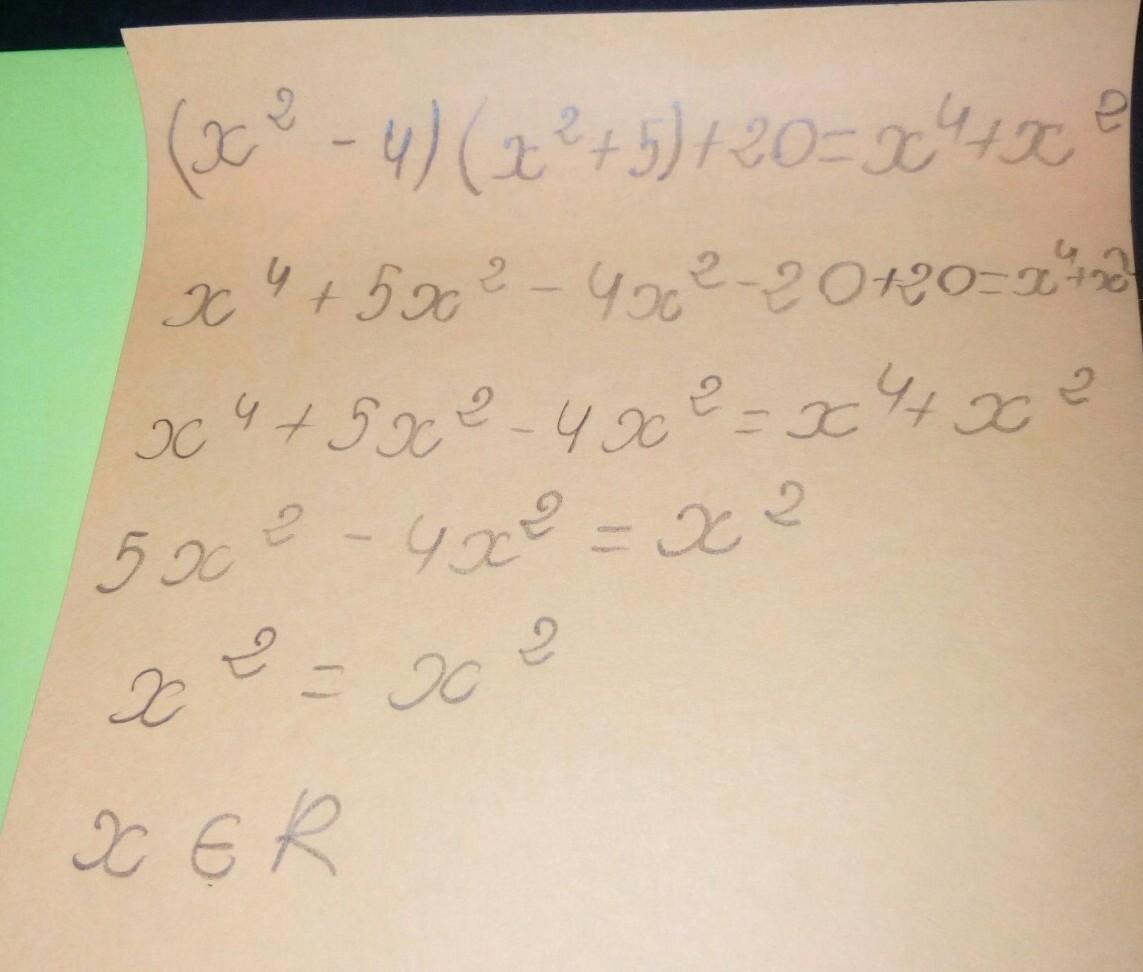 (x² - 4)(x²+5)+20=x⁴+x²
x⁴+5x²-4x²-20+20=x⁴+x²
x⁴+5x²-4x²=x⁴+x²
5x²-4x²=x²
x²=x²
x ∈ R